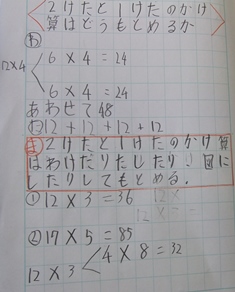 2けたと1けたのかけ
算はどうもとめるか
わ
12×4
6×4=24
6×4=24
あわせて48
た12+12+12+12
ま2けたと1けたのかけ算
はわけたりたしたり、図に
したりしてもとめる。
①12×3=36
②17×5=85
12×3
4×8=32